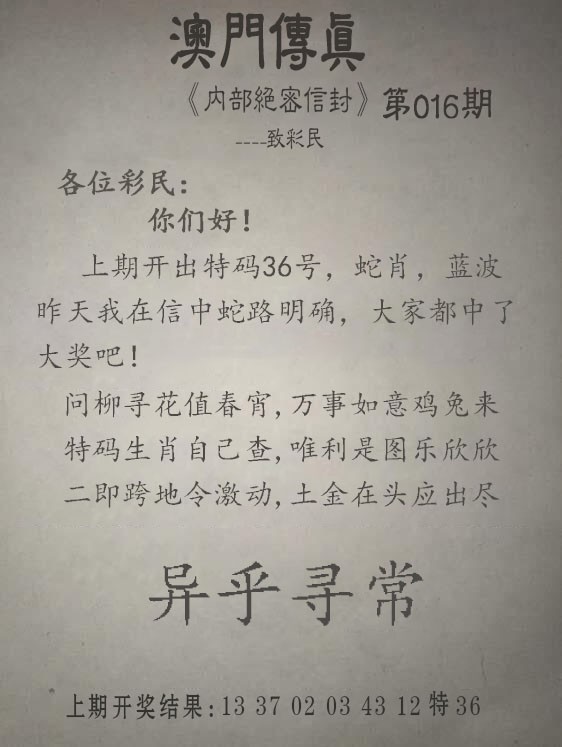 澳門傳眞
《内部絕密信封》第016期
----致彩民
各位彩民:
你们好!
上期开出特码36号，蛇肖，蓝波
昨天我在信中蛇路明确，大家都中了
大奖吧!
问柳寻花值春宵,万事如意鸡兔来
特码生肖自己查,唯利是图乐欣欣
二即跨地令激动,土金在头应出尽
异乎寻常
上期开奖结果:13 37 02 03 43 12 特36